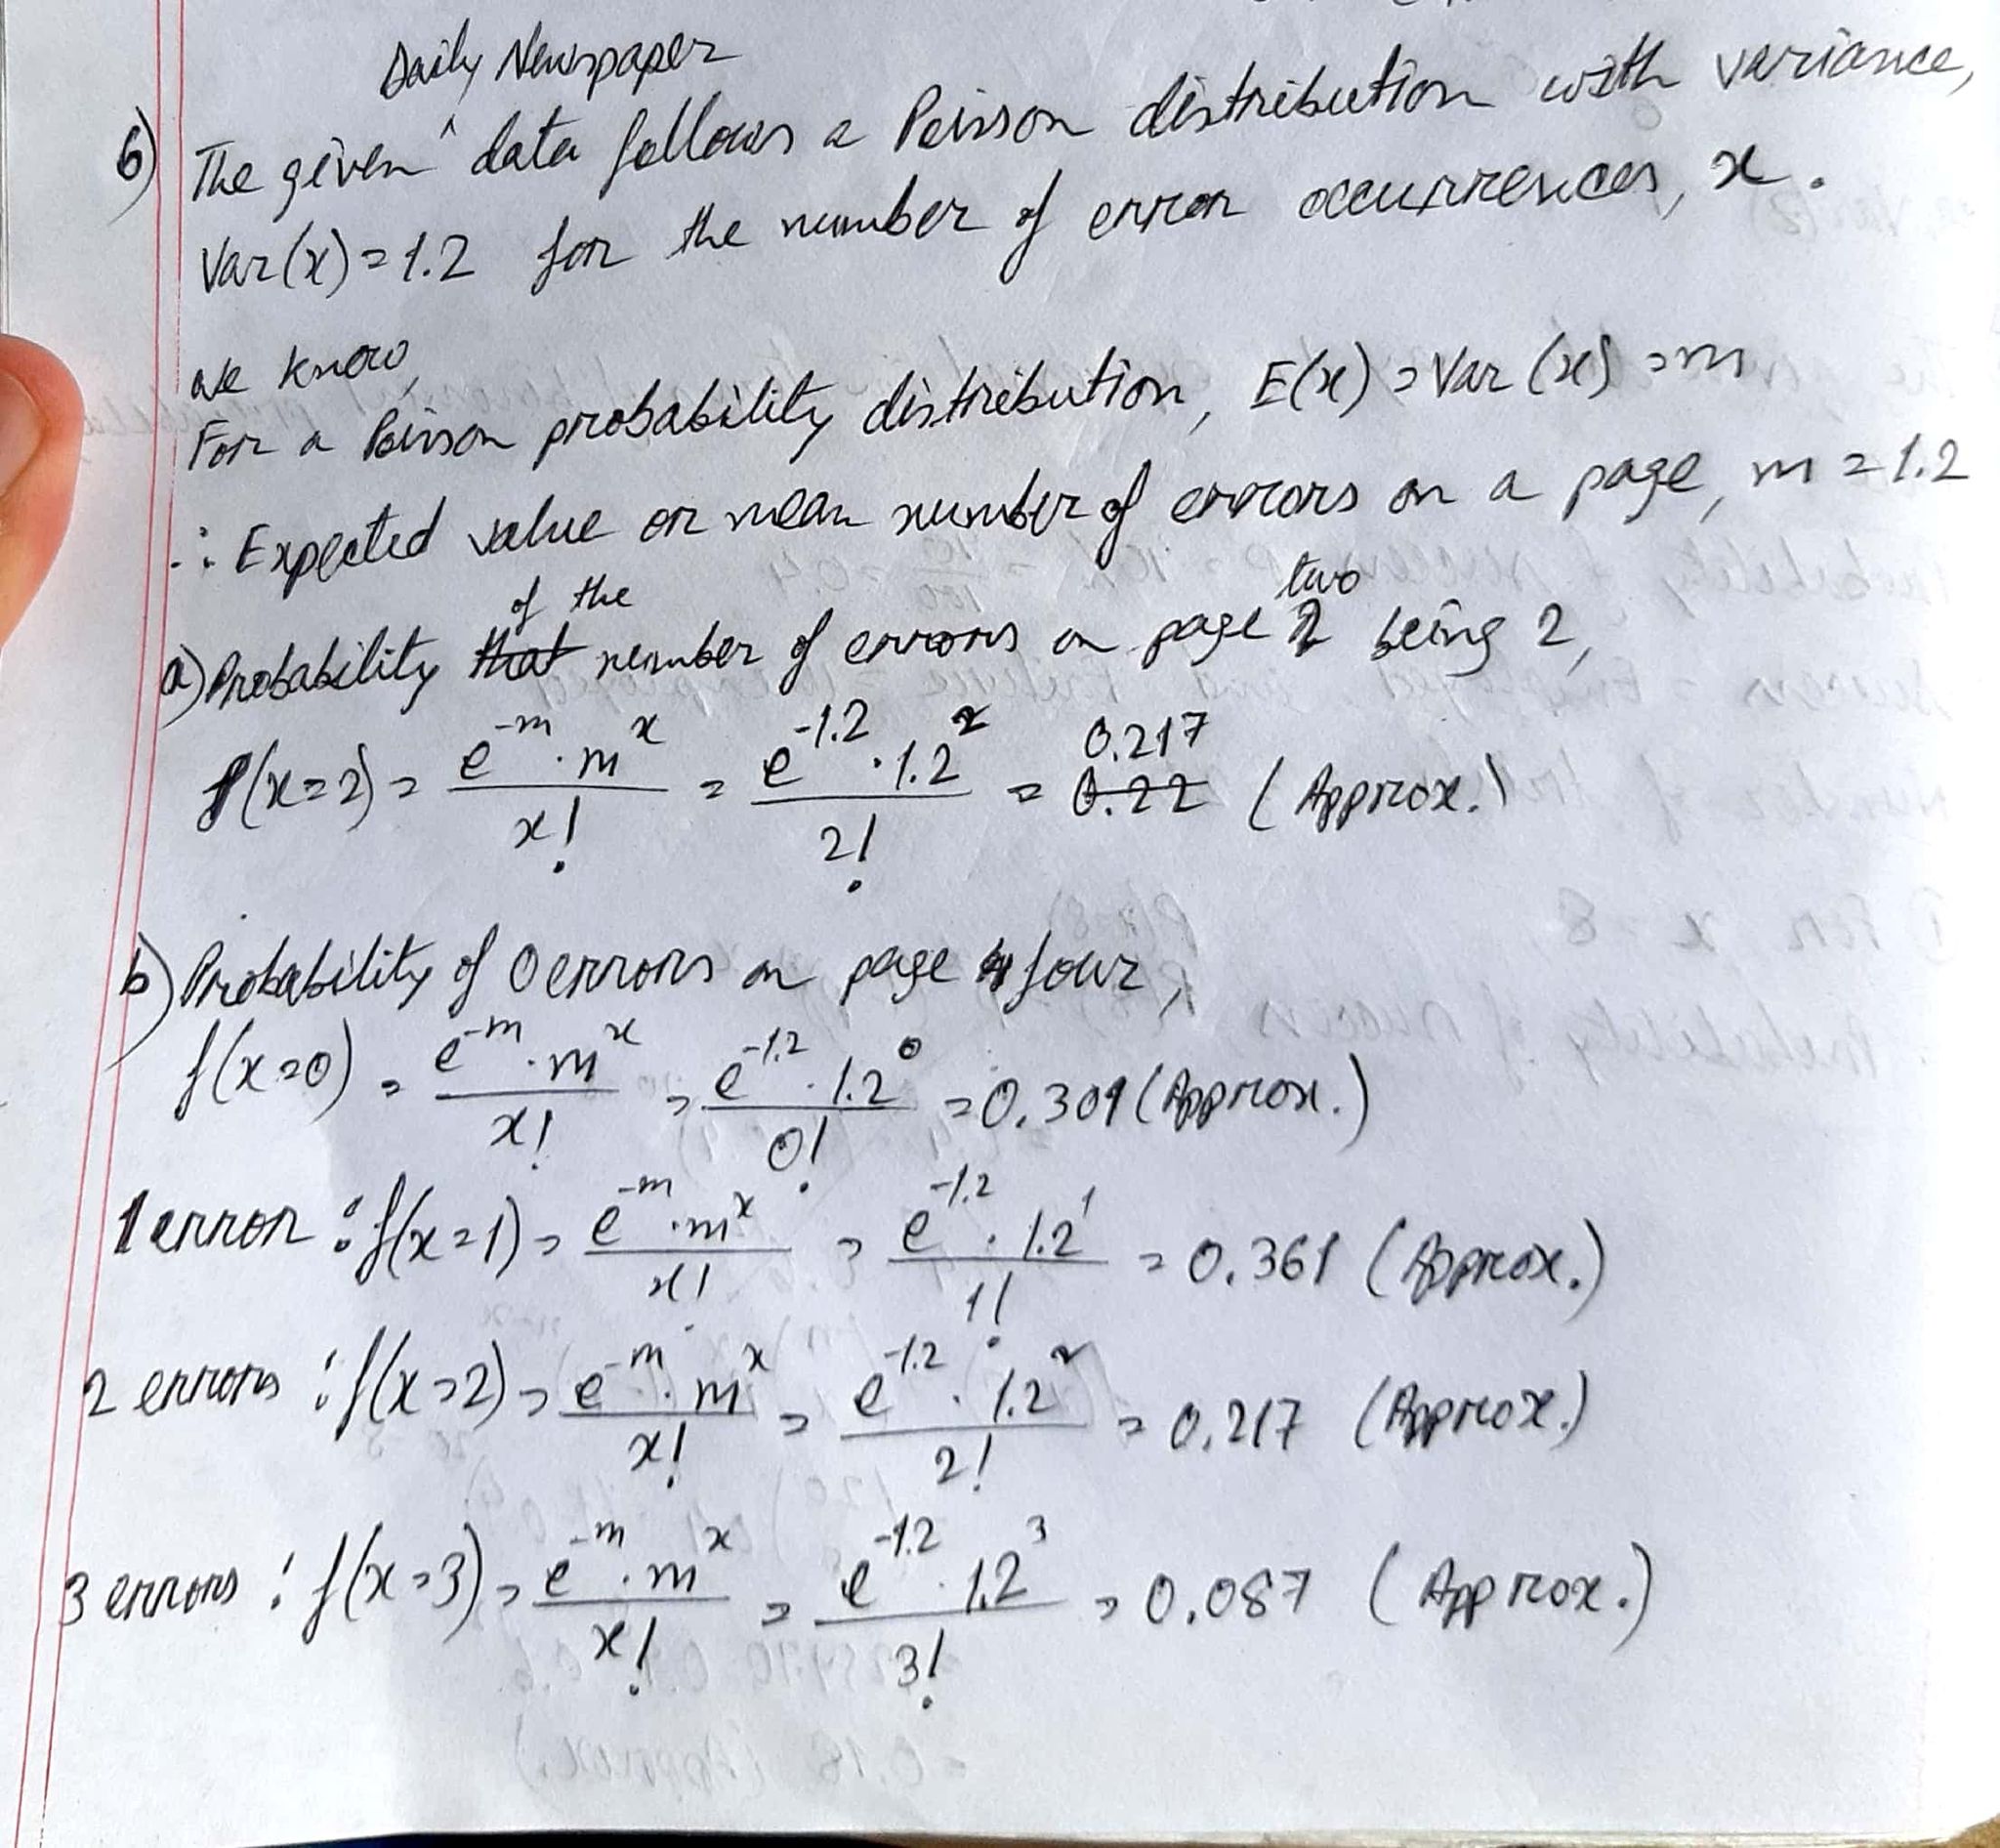 Daily Newspaper
6) The given ^ data follows a Poisson distribution with variance,
Var(x) = 1.2 for the number of error occurrences, x.
we know,
For a Poisson probability distribution, E(x) = Var(x) = m
∴ Expected value or mean number of errors on a page, m = 1.2
of the two
a) Probability that number of errors on page 2 being 2,
f(x=2) = e^-m . m^x / x! = e^-1.2 . 1.2^2 / 2! = 0.217 0.22 (Approx.)
b) Probability of 0 errors on page 4 four,
f(x=0) = e^-m . m^x / x! = e^-1.2 . 1.2^0 / 0! = 0.301 (Approx.)
1 error : f(x=1) = e^-m . m^x / x! = e^-1.2 . 1.2^1 / 1! = 0.361 (Approx.)
2 errors : f(x=2) = e^-m . m^x / x! = e^-1.2 . 1.2^2 / 2! = 0.217 (Approx.)
3 errors : f(x=3) = e^-m . m^x / x! = e^-1.2 . 1.2^3 / 3! = 0.087 (Approx.)